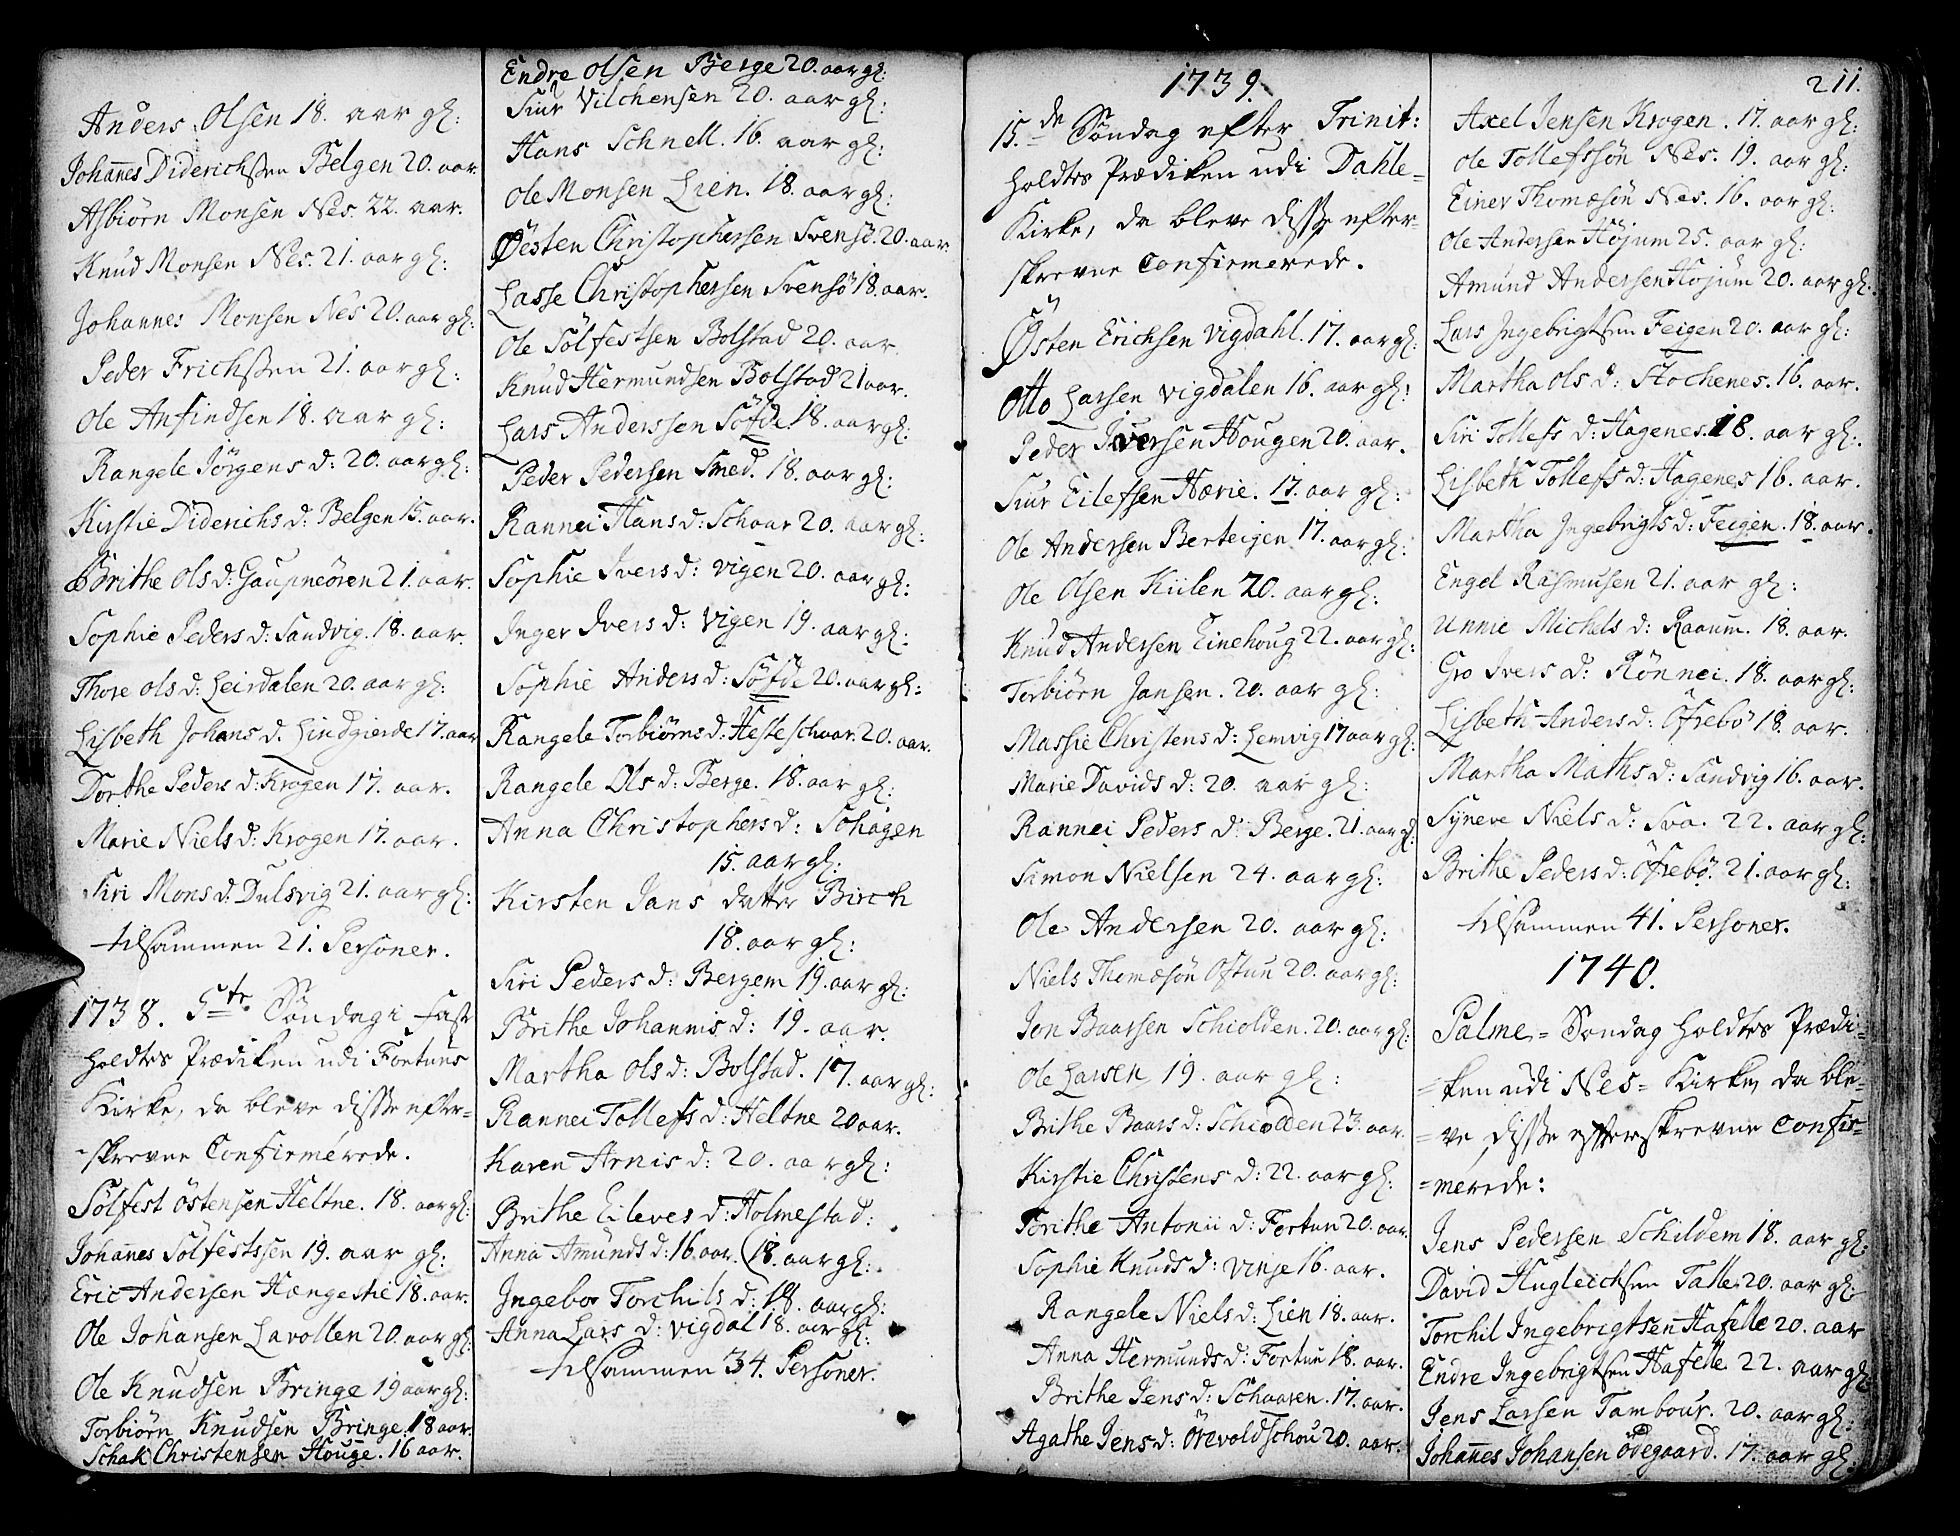 Anders Olsen 18. aar gl:
Johañes Diderichssen Belgen 20. aar.
Asbiørn Monsen Nes. 22. aar.
Knud Monsen Nes. 21. aar gl:
Johannes Monsen Nes 20. aar gl:
Peder Frichssen 21. aar gl:
Ole Anfindsen 18. aar gl:
Rangele Jørgens d: 20. aar gl:
Kirstie Diderichs d: Belgen 15. aar.
Brithe Ols d: Gaupneøren 21. aar.
Sophie Peders d: Sandvig. 18. aar.
Thore Ols d: Leirdalen 20. aar gl:
Lisbeth Johans d. Lindgierde 17. aar
Dorthe Peders d: Krogen 17. aar.
Marie Niels d: Krogen 17. aar.
Siri Mons d: Dulsvig 21. aar gl:
tilsammen 21. Personer.
1738. 5te Søndag i Fast
holdtes Prædiken udi Fortuns
Kirke, da bleve disse efter-
-skrevne Confirmerede.
Sølfest Østensen Heltne. 18. aar gl:
Johañes Sølfestssen 19. aar gl:
Eric Andersen Hængestie 18. aar.
Ole Johansen Lavollen 20. aar gl:
Ole Knudsen Bringe 19 aar gl:
Torbiørn Knudsen Bringe. 18 aar.
Schak Christensen Houge. 16 aar.
Endre Olsen Berge 20. aar gl:
Siur Vilchensen 20. aar gl:
Hans Schnell. 16. aar gl:
Ole Monsen Lien. 18. aar gl:
Øesten Christophersen Svensø. 20. aar
Lasse Christophersen Svensø 18. aar.
Ole Sølfestsen Bolstad 20. aar.
Knud Hermundsen Bolstad 21 aar.
Lars Anderssen Søfde. 18. aar gl:
Peder Pedersen Smed. 18. aar gl:
Rannei Hans d: Schaar 20. aar gl:
Sophie Ivers d: Vigen 20. aar gl:
Inger Ivers d: Vigen 19. aar gl:
Sophie Anders d: Søfde 20. aar gl:
Rangele Torbiørns d: Hesteschaar. 20. aar.
Rangele Ols d: Berge. 18. aar gl:
Anna Christophers d: Sohagen
15. aar gl:
Kirsten Jans datter Birch
18. aar gl:
Siri Peders d: Bergem 19. aar gl:
Brithe Johannis d: 19. aar.
Martha Ols d: Bolstad. 17. aar gl:
Rannei Tollefs d: Heltne 20 aar.
Karen Arnis d: 20. aar gl:
Brithe Eileves d: Holmestad:
Anna Amunds d: 16. aar. (18. aar gl:
Ingebor Torchils d: 18. aar gl:
Anna Lars d: Vigdal 18. aar gl:
tilsammen 34. Personer.
1739.
15.de Søndag efter Trinit:
holdtes Prædiken udi Dahle-
Kirke, da bleve disse efter-
skrevne Confirmerede.
Østen Erichsen Vigdahl. 17. aar gl:
Otto Larsen Vigdalen 16. aar gl:
Peder Iversen Hougen 20. aar.
Siur Eilefsen Hærie. 17. aar gl:
Ole Andersen Berteigen 17. aar gl:
Ole Olsen Kiilen 20. aar gl:
Knud Andersen Einehoug 22. aar gl:
Torbiørn Jansen. 20. aar gl:
Massie Christens d: Lemvig 17 aar gl:
Marie Davids d: 20. aar gl:
Rannei Peders d: Berge. 21. aar gl:
Simon Nielsen 24. aar gl:
Ole Andersen 20. aar gl:
Niels Thomæsøn Oftun 20. aar gl:
Jon Baarsen Schiolden. 20. aar gl:
Ole Larsen 19. aar gl:
Brithe Baars d: Schiolden 23. aar.
Kirstie Christens d: 22. aar gl:
Torithe Antonii d: Fortun 20. aar.
Sophie Knuds d: Vinje 16. aar.
Rangele Niels d: Lien 18. aar.
Anna Hermunds d: Fortun 18. aar.
Brithe Jens d: Schaaren. 17. aar.
Agathe Jens d: Örevoldschou 20. aar.
211.
Axel Jensen Krogen. 17. aar gl:
Ole Tollefssøn Nes. 19. aar gl:
Einer Thomæsøn Nes. 16. aar gl:
Ole Andersen Højum 25. aar gl:
Amund Andersen Højum 20. aar gl:
Lars Ingebrigtsen Feigen 20. aar gl:
Martha Ols d: Stochenes. 16. aar.
Siri Tollefs d: Hagenes. 18. aar gl:
Lisbeth Tollefs d: Hagenes 16. aar.
Martha Ingebrigts d: Feigen. 18. aar.
Engel Rasmusen 21. aar gl:
Unnie Michels d: Raaum. 18. aar.
Gro Ivers d: Rønnei. 18. aar gl:
Lisbeth Anders d: Øfrebø 18. aar.
Martha Maths d: Sandvig 16. aar.
Syneve Niels d: Sva. 22. aar gl:
Brithe Peders d: Øfrebø. 21. aar gl:
tilsammen 41. Personer.
1740.
Palme-Søndag holdtes Prædi-
-ken udi Nes-Kirke, da ble-
-ve disse efterskrevne Confir-
-merede:
Jens Pedersen Schildem 18. aar gl:
David Hugleichsen Talle 20. aar gl:
Torchil Ingebrigtsen Hafelle 20. aar
Endre Ingebrigtsen Hafelle 22. aar gl
Jens Larsen Tambour. 20. aar gl:
Johañes Johansen Ödegaard. 17. aar gl: